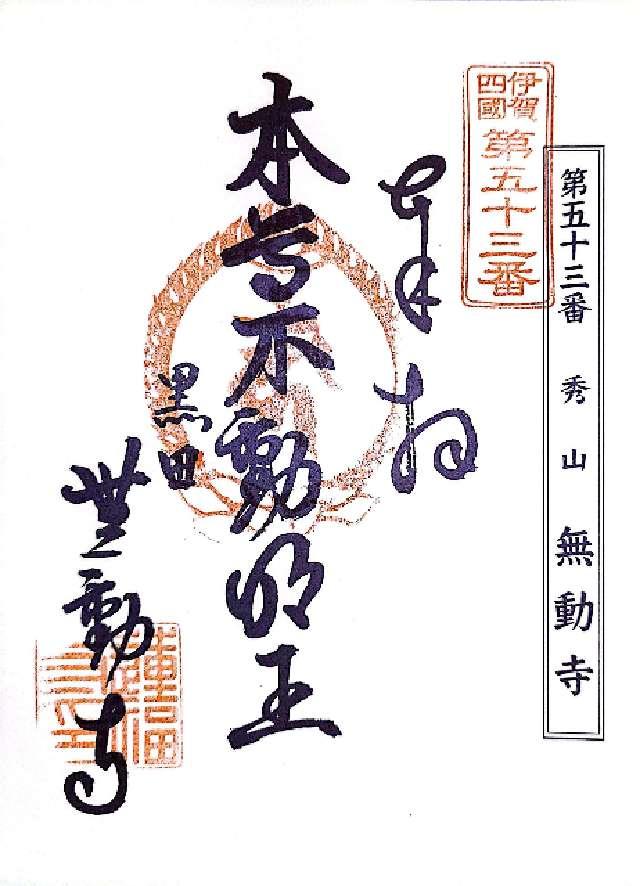 第五十三番 秀山 無動寺
伊賀
四國
第五十三番
奉拝
本尊不動明王
黒田
無動寺